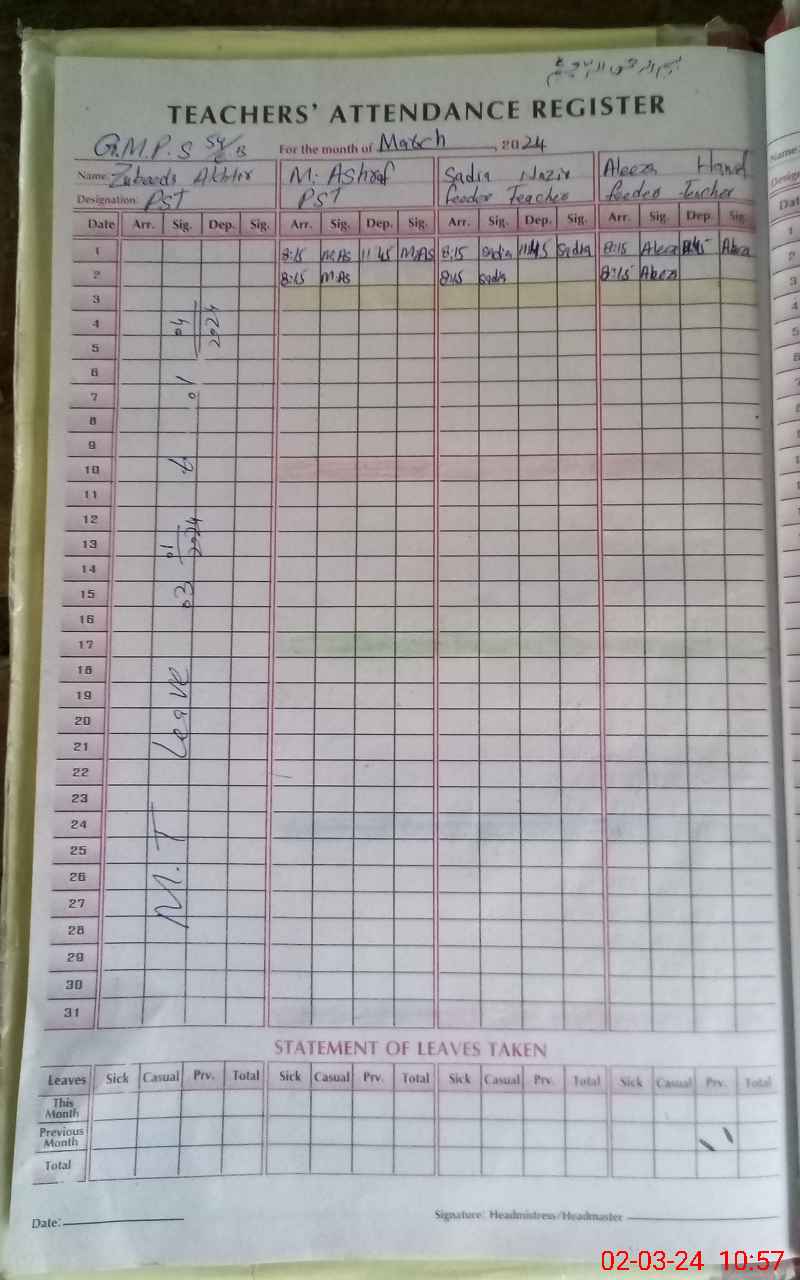 بسم الله الرحمن الرحيم
TEACHERS' ATTENDANCE REGISTER
G.M.P.S For the month of March, 2024
Name: Zubaeda Akhtir M. Ashraf Sadia Nazir Aleeza Hanif
Designation: PST PST feeder Teacher feeder Teacher
Date Arr. Sig. Dep. Sig. Arr. Sig. Dep. Sig. Arr. Sig. Dep. Sig. Arr. Sig. Dep. Sig.
1 8:15 M.AS 11:45 M.AS 8:15 Sadia 11:45 Sadia 8:15 Aleeza 11:45 Aleeza
2 8:15 M.AS 8:15 Sadia 8:15 Aleeza
3
4
5
6
7
8
9
10
11
12
13
14
15
16
17
18
19
20
21
22
23
24
25
26
27
28
29
30
31
M.T Leave 03 01/2024 to 01 04/2024
STATEMENT OF LEAVES TAKEN
Leaves Sick Casual Prv. Total Sick Casual Prv. Total Sick Casual Prv. Total Sick Casual Prv. Total
This Month
Previous Month
Total
Date: Signature: Headmistress/Headmaster
02-03-24 10:57